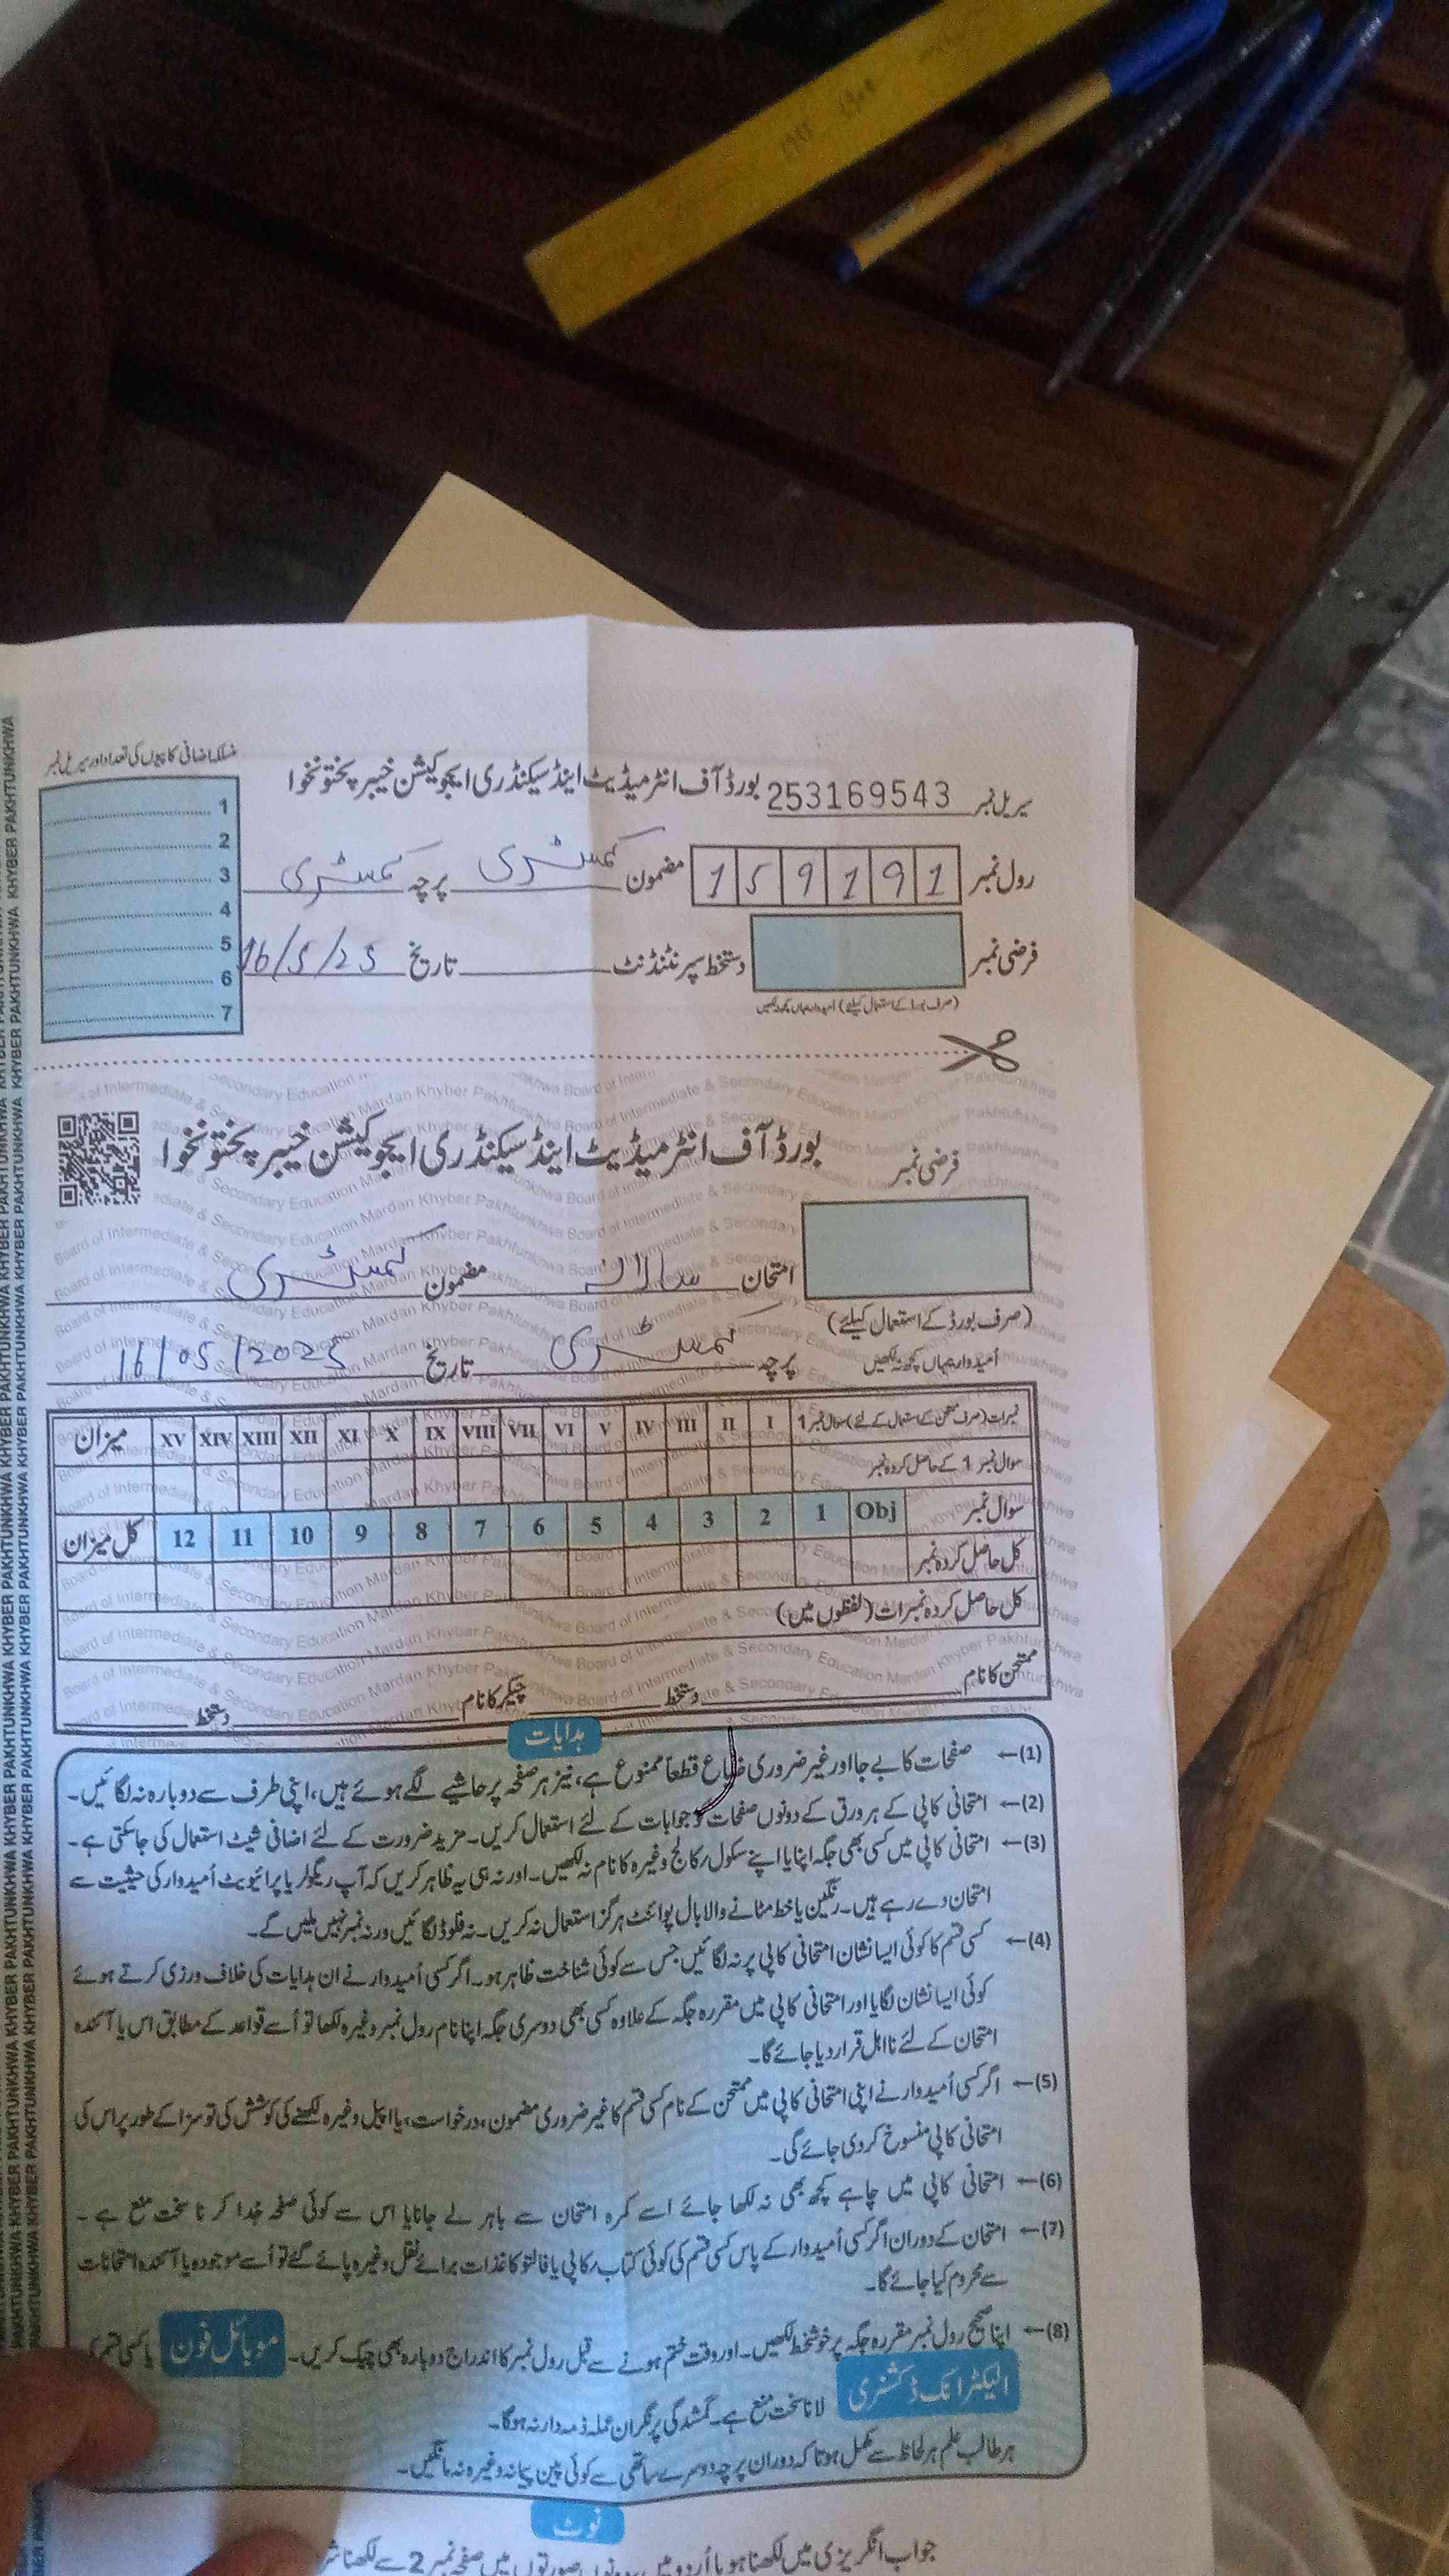 منسلک اضافی کاپیوں کی تعداد اور سیریل نمبر
سیریل نمبر 253169543 بورڈ آف انٹرمیڈیٹ اینڈ سیکنڈری ایجوکیشن خیبر پختونخوا
1
2
3
4
5
6
7
رول نمبر 1 5 9 1 9 1 مضمون کمسٹری پرچہ کمسٹری
فرضی نمبر دستخط سپرنٹنڈنٹ تاریخ 16/5/25
(صرف بورڈ کے استعمال کیلئے) امیدوار یہاں کچھ نہ لکھیں
بورڈ آف انٹرمیڈیٹ اینڈ سیکنڈری ایجوکیشن خیبر پختونخوا
فرضی نمبر
امتحان سالانہ مضمون کمسٹری
(صرف بورڈ کے استعمال کیلئے)
پرچہ کمسٹری تاریخ 16/05/2025
اُمیدوار یہاں کچھ نہ لکھیں
نمبرات (صرف ممتحن کے استعمال کے لئے) سوال نمبر 1 I II III IV V VI VII VIII IX X XI XII XIII XIV XV میزان
سوال نمبر 1 کے حاصل کردہ نمبر
سوال نمبر Obj 1 2 3 4 5 6 7 8 9 10 11 12 کل میزان
کل حاصل کردہ نمبر
کل حاصل کردہ نمبرات (لفظوں میں)
ممتحن کا نام دستخط چیکر کا نام دستخط
ہدایات
(1)← صفحات کا بے جا اور غیر ضروری ضیاع قطعاً ممنوع ہے، نیز ہر صفحہ پر حاشیے لگے ہوئے ہیں، اپنی طرف سے دوبارہ نہ لگائیں۔
(2)← امتحانی کاپی کے ہر ورق کے دونوں صفحات کو جوابات کے لئے استعمال کریں۔ مزید ضرورت کے لئے اضافی شیٹ استعمال کی جاسکتی ہے۔
(3)← امتحانی کاپی میں کسی بھی جگہ اپنا یا اپنے سکول رکالج وغیرہ کا نام نہ لکھیں۔ اور نہ ہی یہ ظاہر کریں کہ آپ ریگولر یا پرائیویٹ اُمیدوار کی حیثیت سے
امتحان دے رہے ہیں۔ رنگین یا خط مٹانے والا بال پوائنٹ ہرگز استعمال نہ کریں۔ نہ فلوڈ لگائیں ورنہ نمبر نہیں ملیں گے۔
(4)← کسی قسم کا کوئی ایسا نشان امتحانی کاپی پر نہ لگائیں جس سے کوئی شناخت ظاہر ہو۔ اگر کسی اُمیدوار نے ان ہدایات کی خلاف ورزی کرتے ہوئے
کوئی ایسا نشان لگایا اور امتحانی کاپی میں مقررہ جگہ کے علاوہ کسی بھی دوسری جگہ اپنا نام رول نمبر وغیرہ لکھا تو اُسے قواعد کے مطابق اس یا آئندہ
امتحان کے لئے نااہل قرار دیا جائے گا۔
(5)← اگر کسی اُمیدوار نے اپنی امتحانی کاپی میں ممتحن کے نام کسی قسم کا غیر ضروری مضمون، درخواست، یا اپیل وغیرہ لکھنے کی کوشش کی تو سزا کے طور پر اس کی
امتحانی کاپی منسوخ کردی جائے گی۔
(6)← امتحانی کاپی میں چاہے کچھ بھی نہ لکھا جائے اسے کمرہ امتحان سے باہر لے جانا یا اس سے کوئی صفحہ جُدا کرنا سخت منع ہے۔
(7)← امتحان کے دوران اگر کسی اُمیدوار کے پاس کسی قسم کی کوئی کتاب رکاپی یا فالتو کاغذات برائے نقل وغیرہ پائے گئے تو اُسے موجودہ یا آئندہ امتحانات
سے محروم کیا جائے گا۔
(8)← اپنا صحیح رول نمبر مقررہ جگہ پر خوشخط لکھیں۔ اور وقت ختم ہونے سے قبل رول نمبر کا اندراج دوبارہ بھی چیک کریں۔ موبائل فون یا کسی قسم کی
الیکٹرانک ڈکشنری لانا سخت منع ہے۔ گمشدگی پر نگران عملہ ذمہ دار نہ ہوگا۔
ہر طالب علم ہر لحاظ سے مکمل ہو تا کہ دوران پرچہ دوسرے ساتھی سے کوئی پین پیمانہ وغیرہ نہ مانگیں۔
نوٹ
جواب انگریزی میں لکھنا ہو یا اُردو میں دونوں صورتوں میں صفحہ نمبر 2 سے لکھنا